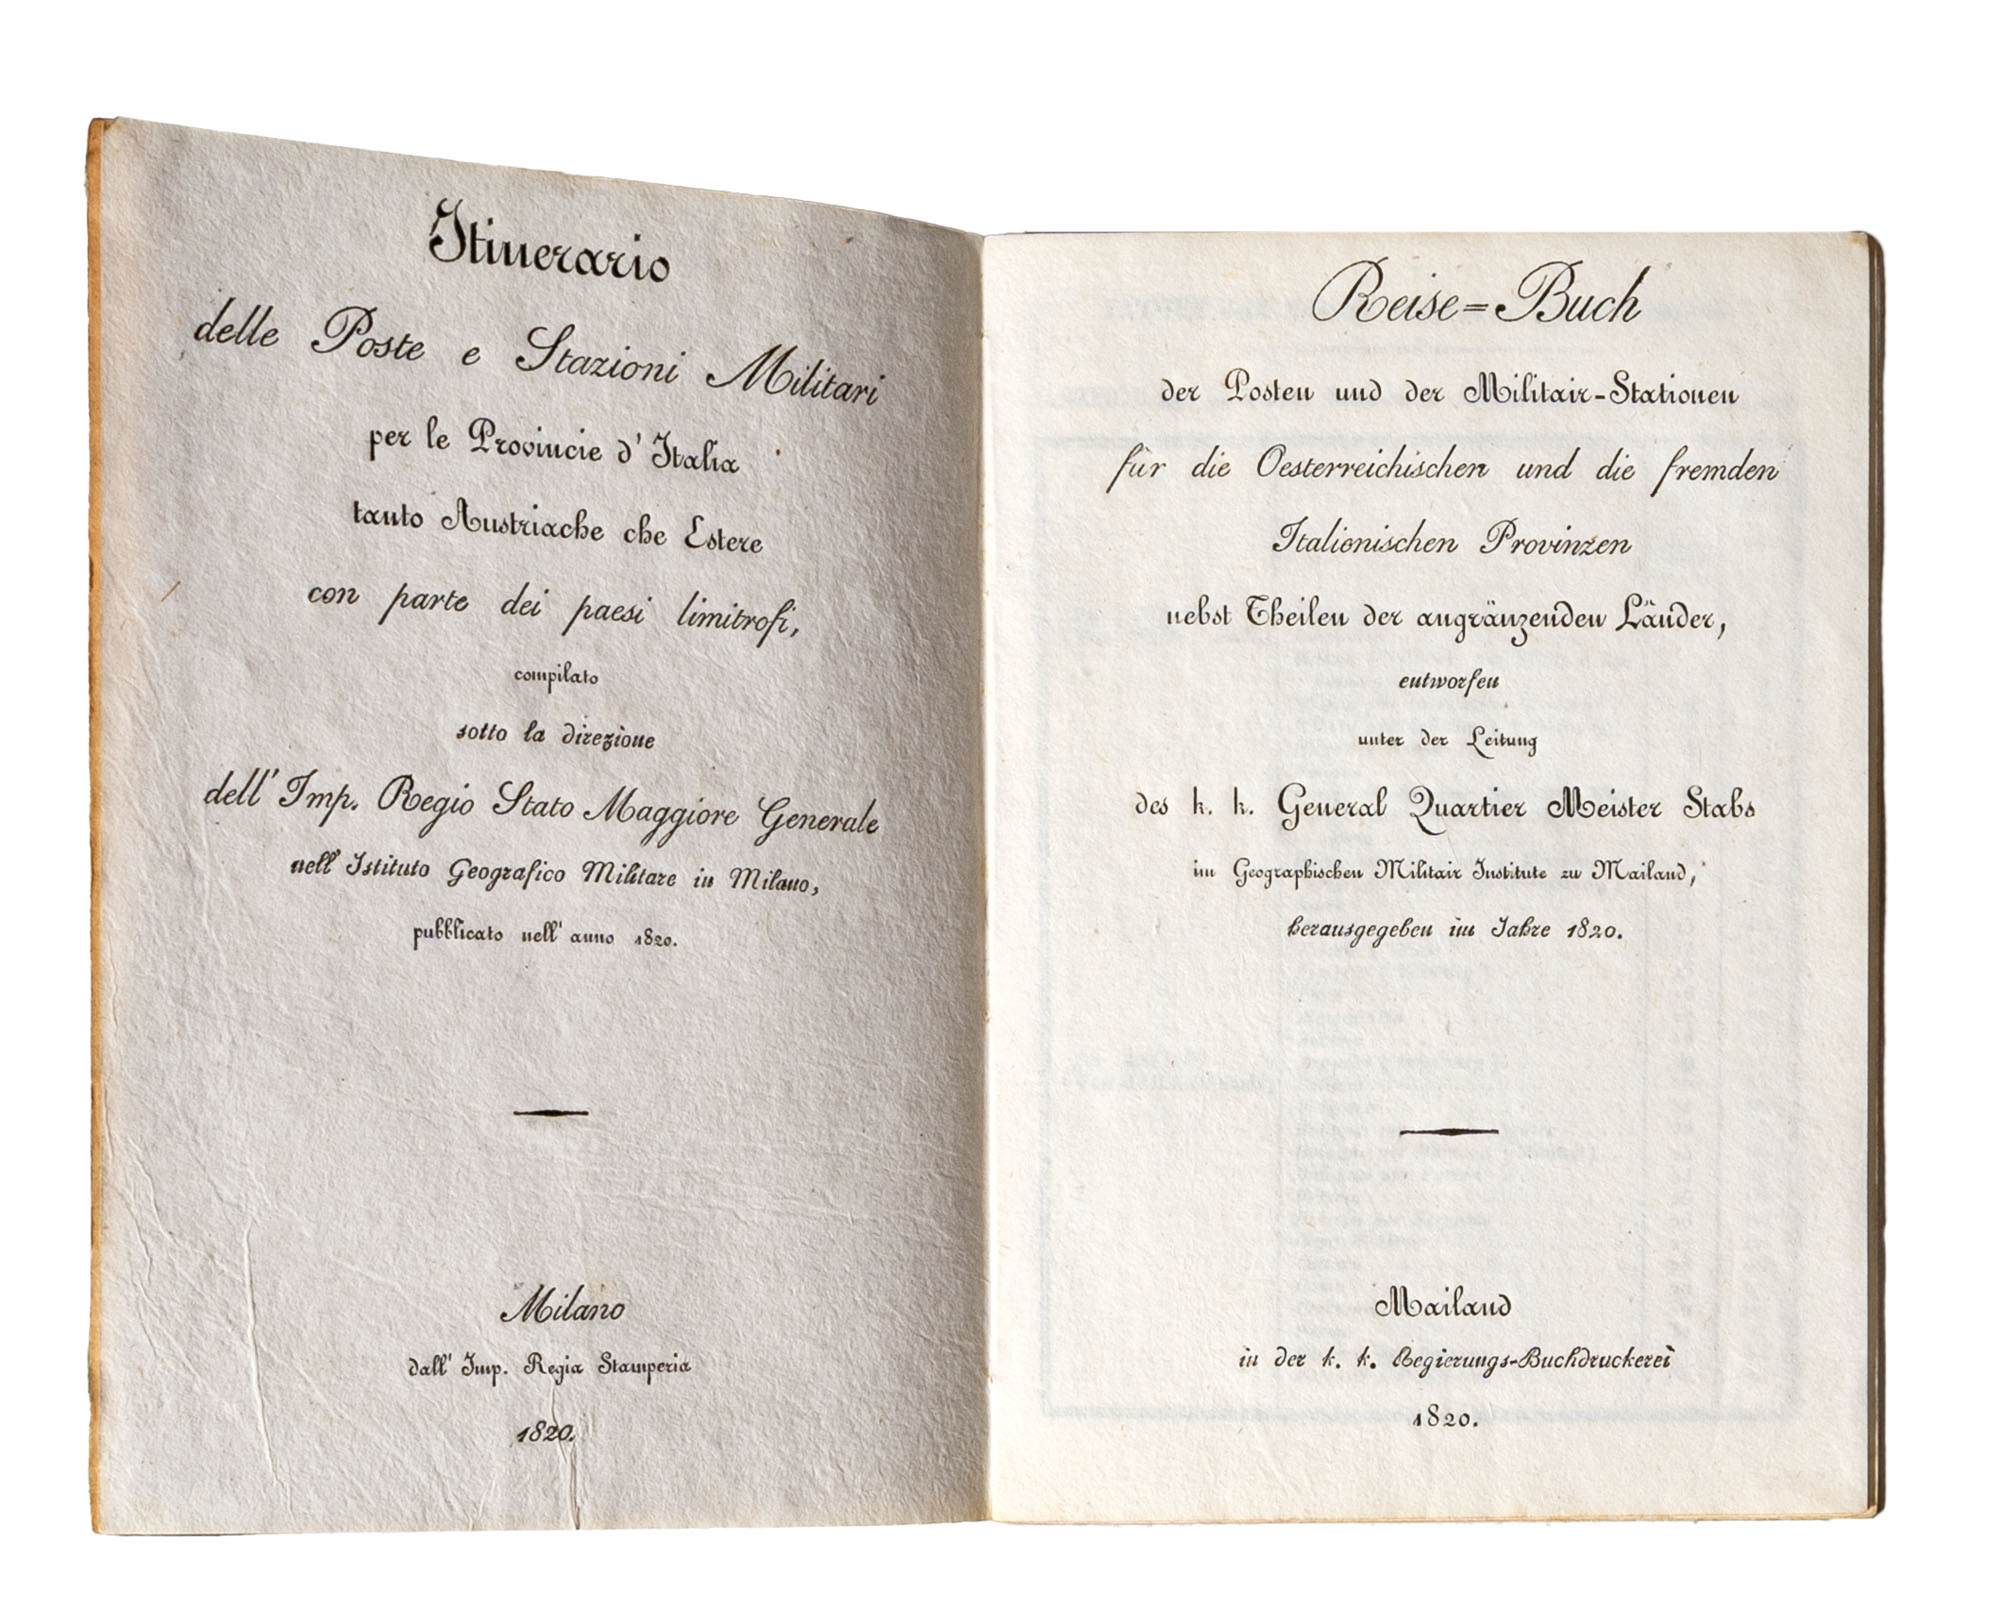 Itinerario
delle Poste e Stazioni Militari
per le Provincie d' Italia
tanto Austriache che Estere
con parte dei paesi limitrofi,
compilato
sotto la direzione
dell' Imp. Regio Stato Maggiore Generale
nell' Istituto Geografico Militare in Milano,
pubblicato nell' anno 1820.
Milano
dall' Imp. Regia Stamperia
1820.
Reise=Buch
der Posten und der Militair-Stationen
für die Oesterreichischen und die fremden
Italienischen Provinzen
nebst Theilen der angränzenden Länder,
entworfen
unter der Leitung
des k. k. General Quartier Meister Stabs
im Geographischen Militair Institute zu Mailand,
herausgegeben im Jahre 1820.
Mailand
in der k. k. Regierungs-Buchdruckerei
1820.